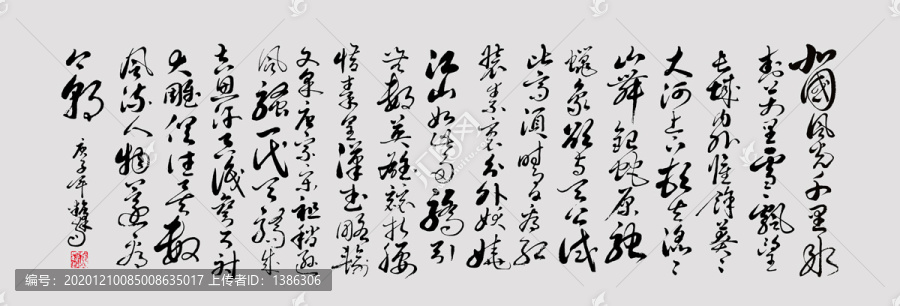 北國風光千里冰
封万里雪〻飘望
长城内外惟馀莽〻
大河上下顿失滔〻
山舞银蛇原驰
蜡象欲与天公试
比高须晴日看红
装素裹分外妖娆
江山如此多骄引
无数英雄竞折腰
惜秦皇汉武略输
文采唐宗宋祖稍逊
风骚一代天骄成
吉思汗只识弯弓射
大雕俱往矣数
风流人物还看
今朝
庚子年
编号：20201210085008635017 上传于：1386306